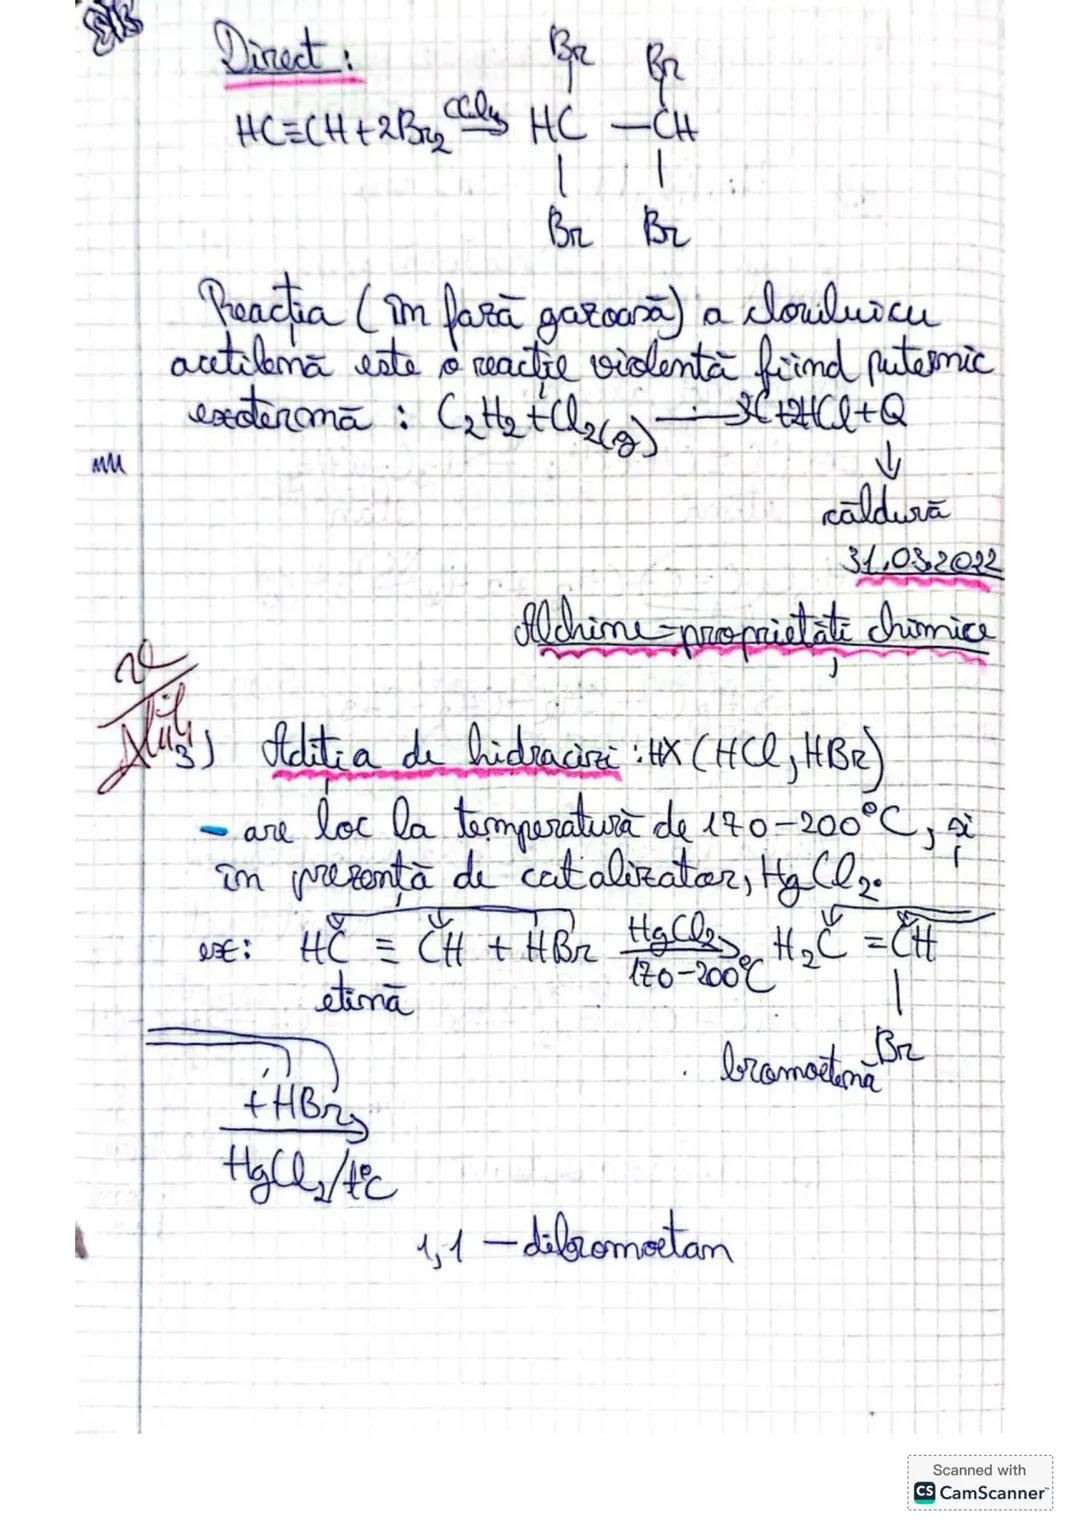 Direct:
Br Br
HC≡CH+2Br₂ CCl₄ HC—CH
Br Br
Reacția (în fază gazoasă) a clorului cu
acetilenă este o reacție violentă fiind puternic
exotermă : C₂H₂+Cl₂(g) → 2C+2HCl+Q
↓
căldură
31.03.2022
Alchine-proprietăți chimice
3) Adiția de hidracizi : HX (HCl, HBr)
- are loc la temperatură de 170-200°C, și
în prezență de catalizator, HgCl₂.
ex: HC ≡ CH + HBr HgCl₂ H₂C = CH
170-200°C
etină
Br
bromoetenă
+HBr
HgCl₂/t°C
1,1 – dibromoetan
Scanned with
CS CamScanner